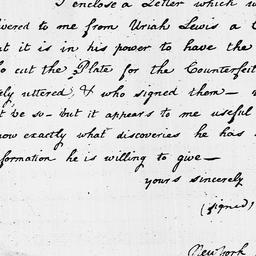 I enclose a Letter which w
ivered to me from Uriah Lewis a C
at it is in his power to have the
ho cut the Plate for the Counterfeit
ely uttered, & who signed them —
t be so — but it appears to me useful
now exactly what discoveries he has
formation he is willing to give —
yours sincerely
(signed)
New York